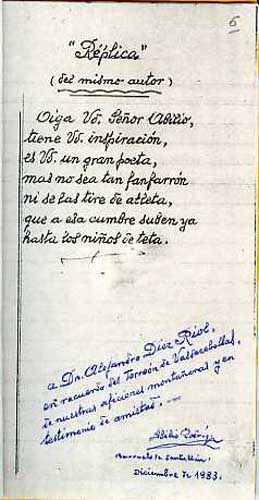 6
"Réplica"
(del mismo autor)
Oiga Vd. Señor Abilio,
tiene Vd. inspiración,
es Vd. un gran poeta,
mas no sea tan fanfarrón
ni se las tire de atleta,
que a esa cumbre suben ya
hasta los niños de teta.
a Dn. Alejandro Díez Riol,
en recuerdo del Torreón de Valdecebollas,
de nuestras aficiones montañeras y en
testimonio de amistad.
Abilio
Barruelo de Santullán.
Diciembre de 1983.